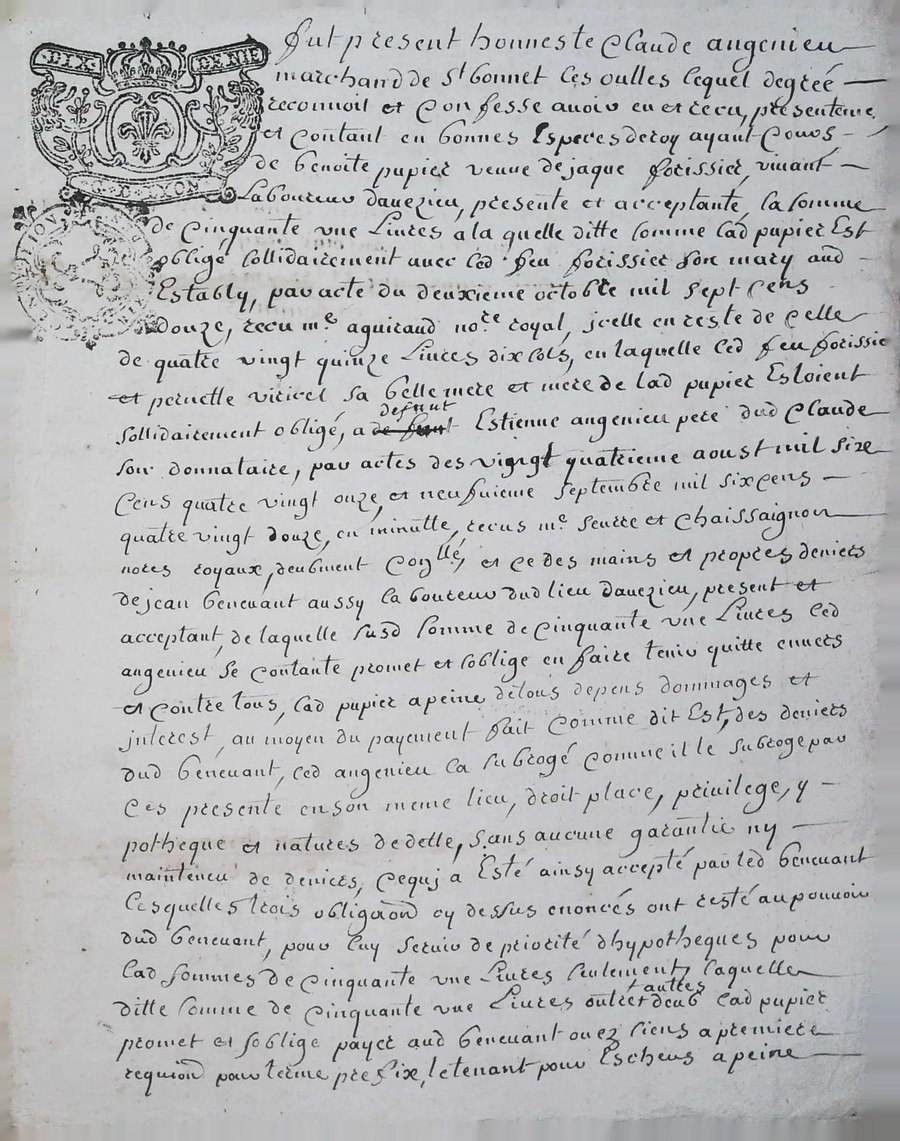 DIX DENIE
G. D. LYON
fut present honneste Claude angenieu
marchand de St bonnet les oulles lequel de gré
reconnoit et Confesse avoir eu et recu, presenteme
et Contant en bonnes Especes de roy ayant Cours,
de benoite pupier veuve de jaque forissier, vivant
Laboureur davezieu, presente et acceptante, la somme
de Cinquante une Livres a la quelle ditte somme lad pupier Est
obligé sollidairement avec led feu forissier son mary aud
Estably, par acte du deuxieme octobre mil sept cens
douze, recu me aguiraud nore royal, jcelle en reste de Celle
de quatre vingt quinze Livres dix sols, en laquelle led feu forissie
et pernette virivel sa belle mere et mere de lad pupier Estoient
sollidairement obligé, a defunt Estienne angenieu pere dud Claude
son donnataire, par actes des vingt quatrieme aoust mil sixe
Cens quatre vingt onze, et neufuieme septembre mil sixcens
quatre vingt douze, en minutte, recus me seurre et Chaissaignon
nores royaux, deubment Conllé, et ce des mains et propres deniers
de jean benevant aussy laboureur dud lieu davezieu, present et
acceptant, de laquelle susd somme de Cinquante une Livres led
angenieu se contante promet et soblige en faire tenir quitte envers
et Contre tous, lad pupier a peine de tous depens dommages et
interest, au moyen du payement fait Comme dit Est, des deniers
dud benevant, led angenieu la subrogé Comme il le subroge par
Ces presente en son meme lieu, droit place, privilege, y
potheque et natures de dette, sans aucune garantie ny
mainteneu de deniers, Cequj a Esté ainsy accepté par led benevant
Lesquelles trois obligaond cy dessus enoncés ont resté au pouvoir
dud benevant, pour luy servir de priorité dhypotheques pour
lad sommes de Cinquante une Livres seulement, laquelle
ditte somme de Cinquante une Livres outre dautres lad pupier
promet et soblige payer aud benevant ou ez siens a premiere
requiond pour terme prefix, le tenant pour Escheus a peine